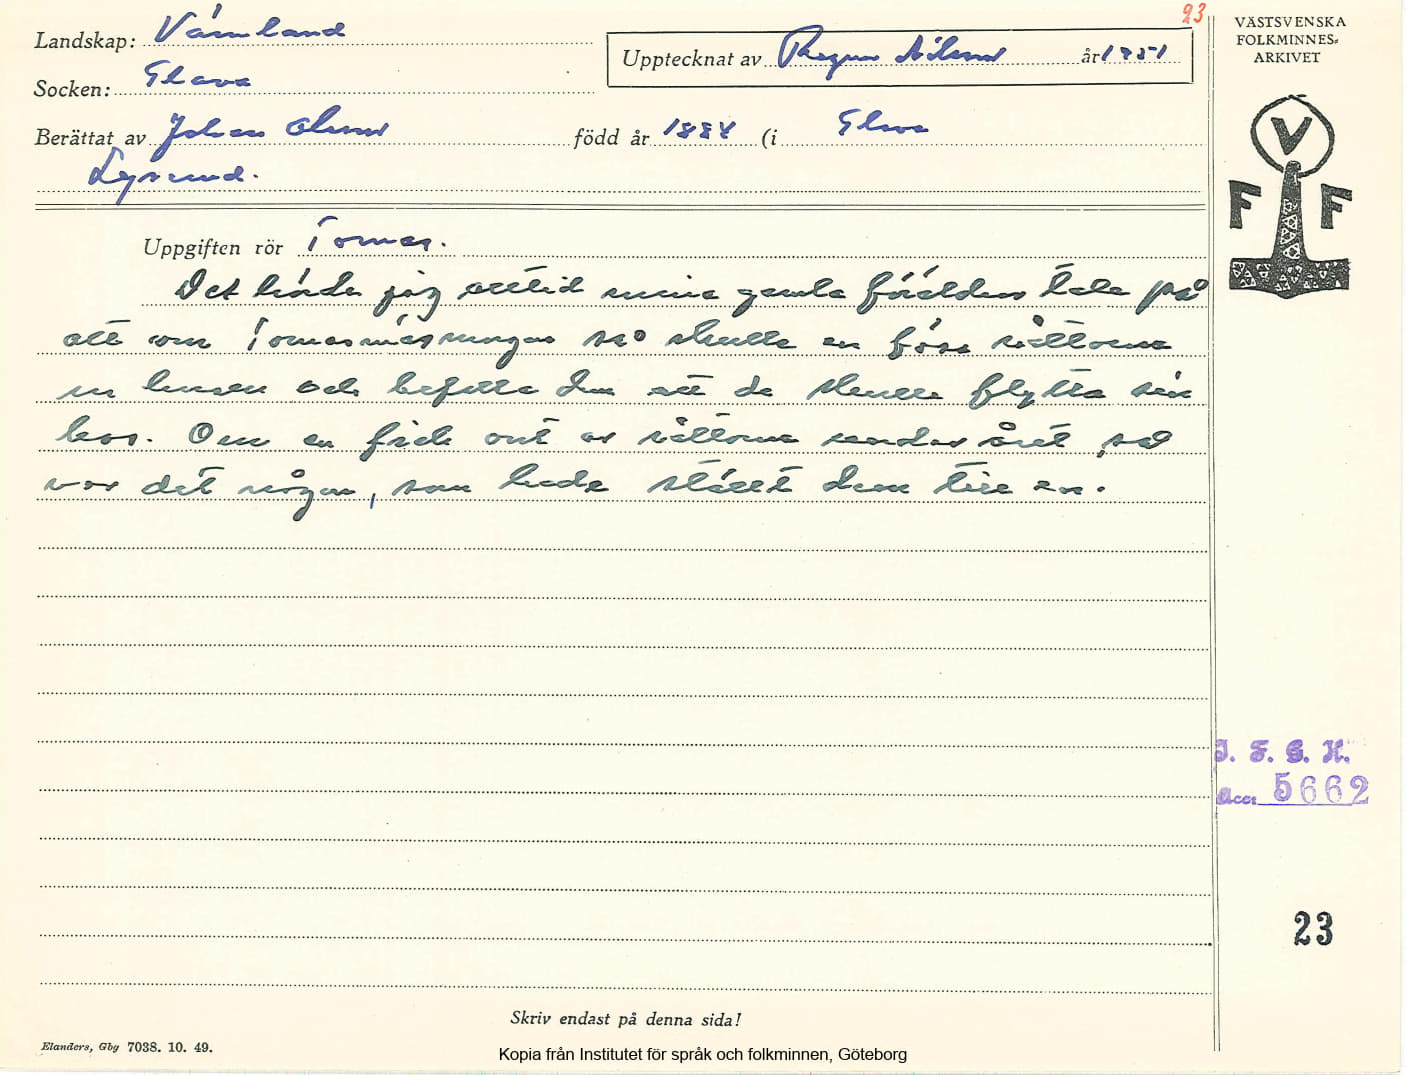 23
Landskap: Värmland
Upptecknat av Ragnar Nilsson år 1951
Socken: Glava
Berättat av Johan Olsson född år 1884 (i Glava
Lyserud.
Uppgiften rör Tomas.
Det hörde jag alltid mina gamla föräldrar tala på
att om Tomasmäsmorgon så skulle en föse råttorna
ur husen och befalla dem att de skulle flytta sin
kos. Om en fick ont av råttorna sedan året, så
var det någon, som hade ställt dem till en.
VÄSTSVENSKA
FOLKMINNES-
ARKIVET
V
F F
I. F. G. H.
Acc. 5662
23
Skriv endast på denna sida!
Elanders, Gbg 7038. 10. 49.
Kopia från Institutet för språk och folkminnen, Göteborg